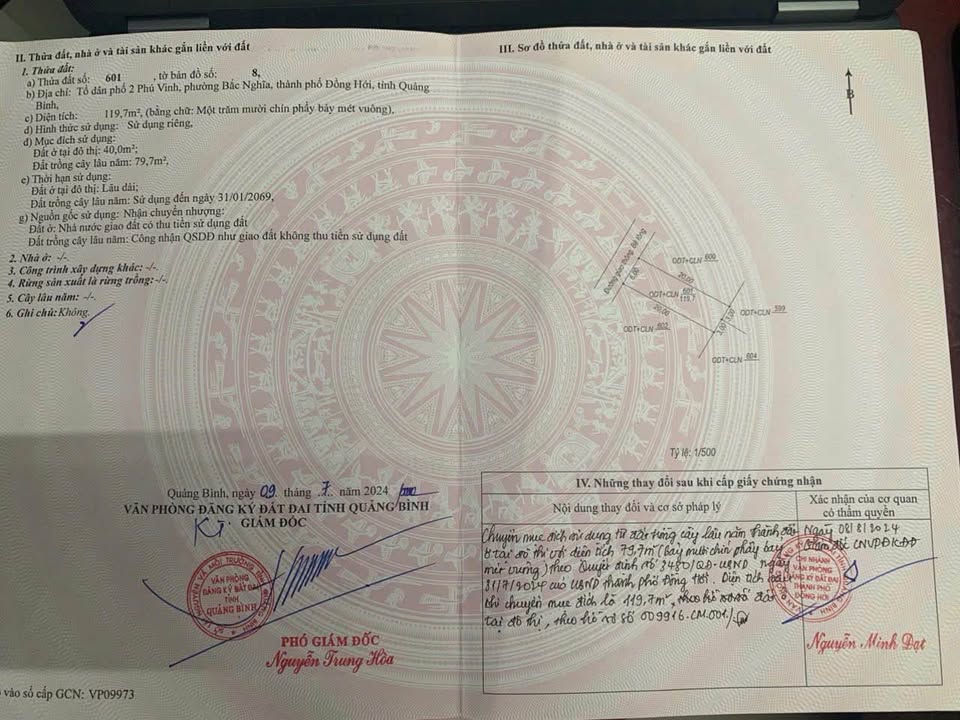 II. Thửa đất, nhà ở và tài sản khác gắn liền với đất
1. Thửa đất:
a) Thửa đất số: 601 , tờ bản đồ số: 8,
b) Địa chỉ: Tổ dân phố 2 Phú Vinh, phường Bắc Nghĩa, thành phố Đồng Hới, tỉnh Quảng
Bình,
c) Diện tích: 119,7m², (bằng chữ: Một trăm mười chín phẩy bảy mét vuông),
d) Hình thức sử dụng: Sử dụng riêng,
đ) Mục đích sử dụng:
Đất ở tại đô thị: 40,0m²;
Đất trồng cây lâu năm: 79,7m²,
e) Thời hạn sử dụng:
Đất ở tại đô thị: Lâu dài;
Đất trồng cây lâu năm: Sử dụng đến ngày 31/01/2069,
g) Nguồn gốc sử dụng: Nhận chuyển nhượng:
Đất ở: Nhà nước giao đất có thu tiền sử dụng đất
Đất trồng cây lâu năm: Công nhận QSDĐ như giao đất không thu tiền sử dụng đất
2. Nhà ở: -/-.
3. Công trình xây dựng khác: -/-.
4. Rừng sản xuất là rừng trồng: -/-.
5. Cây lâu năm: -/-.
6. Ghi chú: Không.
Quảng Bình, ngày 09 tháng 7 năm 2024
VĂN PHÒNG ĐĂNG KÝ ĐẤT ĐAI TỈNH QUẢNG BÌNH
KT. GIÁM ĐỐC
VĂN PHÒNG
ĐĂNG KÝ ĐẤT ĐAI
TỈNH
QUẢNG BÌNH
PHÓ GIÁM ĐỐC
Nguyễn Trung Hòa
vào sổ cấp GCN: VP09973
III. Sơ đồ thửa đất, nhà ở và tài sản khác gắn liền với đất
B
Đường giao thông Bê tông
ODT+CLN 600
20,00
6,00
ODT+CLN 601
119,7
20,00
ODT+CLN 599
3,00 3,00
ODT+CLN 602
ODT+CLN 604
Tỷ lệ: 1/500
IV. Những thay đổi sau khi cấp giấy chứng nhận
Nội dung thay đổi và cơ sở pháp lý
Xác nhận của cơ quan
có thẩm quyền
Chuyển mục đích sử dụng từ đất trồng cây lâu năm thành đất
ở tại đô thị với diện tích 79,7m² (bảy mươi chín phẩy bảy
mét vuông) theo Quyết định số 3480/QĐ-UBND ngày
31/7/2024 của UBND thành phố Đồng Hới. Diện tích sau
khi chuyển mục đích là 119,7m², đất ở
tại đô thị, theo hồ sơ số 009916.CM.001/.
Ngày 08/8/2024
Giám đốc CNVPĐKĐĐ
CHI NHÁNH
VĂN PHÒNG
ĐĂNG KÝ ĐẤT ĐAI
THÀNH PHỐ
ĐỒNG HỚI
Nguyễn Minh Đạt